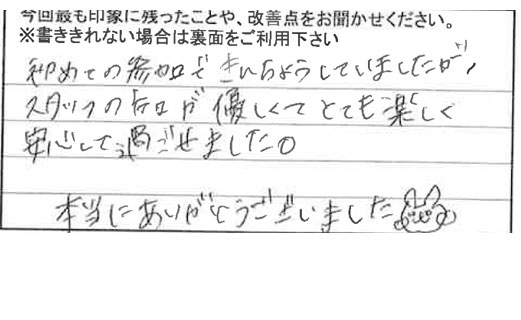 今回最も印象に残ったことや、改善点をお聞かせください。
※書ききれない場合は裏面をご利用下さい
初めての参加できんちょうしていましたが、
スタッフの方が優しくてとても楽しく
安心して過ごせました。
本当にありがとうございました